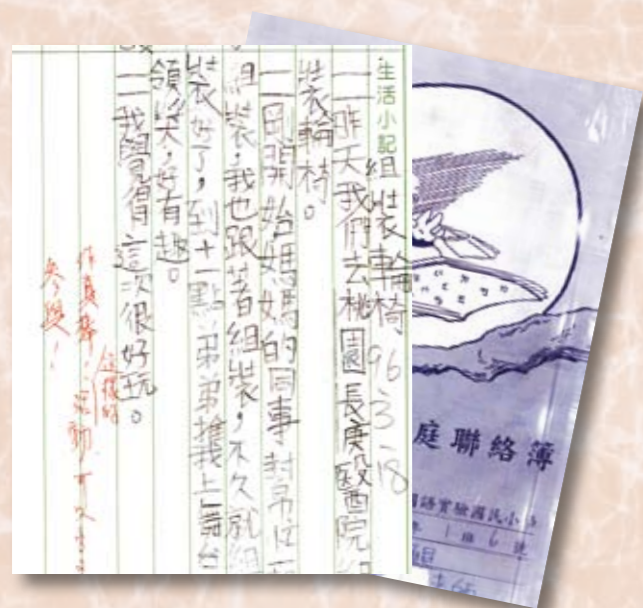 生活小記 組裝輪椅 96 3-18
一昨天我們去桃園長庚醫院
裝輪椅。
一剛開始媽媽的同事
組裝,我也跟著組裝,不久就組
裝好了,到十一點弟弟搶我上舞台
領獎,好有趣。
一我覺得這次很好玩。
你真棒!這樣的活動可以多多
參與!
庭聯絡簿
語實驗國民小
1 班 6 號